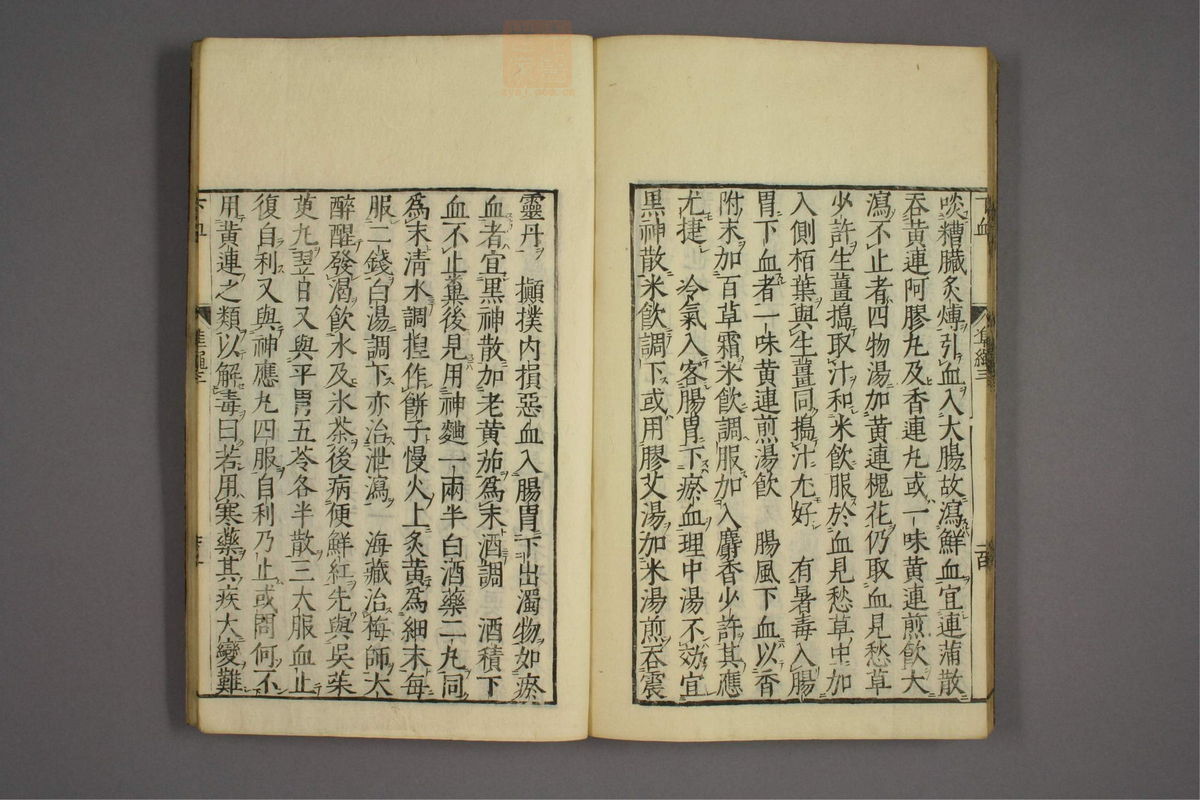 啖糟臟炙煿引血入大腸故瀉鮮血宜連蒲散
吞黃連阿膠丸及香連丸或一味黃連煎飲大
瀉不止者四物湯加黃連槐花仍取血見愁草
少許生薑搗取汁和米飲服於血見愁草中加
入側栢葉與生薑同搗汁尤好　有暑毒入腸
胃下血者一味黃連煎湯飲　腸風下血以香
附末加百草霜米飲調服加入麝香少許其應
尤捷　冷氣入客腸胃下瘀血理中湯不効宜
黑神散米飲調下或用膠艾湯加米湯煎吞震
靈丹　攧撲內損惡血入腸胃下出濁物如瘀
血者宜黑神散加老黃茄爲末酒調　酒積下
血不止糞後見用神麯一兩半白酒藥二丸同
爲末清水調揑作餅子慢火上炙黃爲細末每
服二錢白湯調下亦治泄瀉　海藏治梅師大
醉醒發渴飲水及氷茶後病便鮮紅先與吳茱
萸丸翌日又與平胃五苓各半散三大服血止
復自利又與神應丸四服自利乃止或問何不
用黃連之類以解毒曰若用寒藥其疾大變難
下血
準繩三